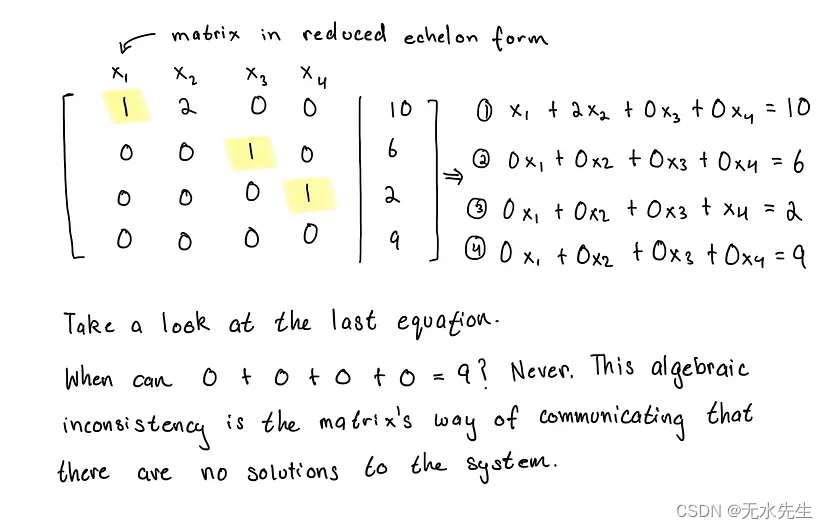 matrix in reduced echelon form
x₁ x₂ x₃ x₄
1 2 0 0 | 10
0 0 1 0 | 6
0 0 0 1 | 2
0 0 0 0 | 9
⇒
① x₁ + 2x₂ + 0x₃ + 0x₄ = 10
② 0x₁ + 0x2 + 0x3 + 0x₄ = 6
③ 0x₁ + 0x2 + 0x3 + x₄ = 2
④ 0x₁ + 0x2 + 0x₃ + 0x₄ = 9
Take a look at the last equation.
When can 0 + 0 + 0 + 0 = 9? Never. This algebraic
inconsistency is the matrix's way of communicating that
there are no solutions to the system.
CSDN @无水先生